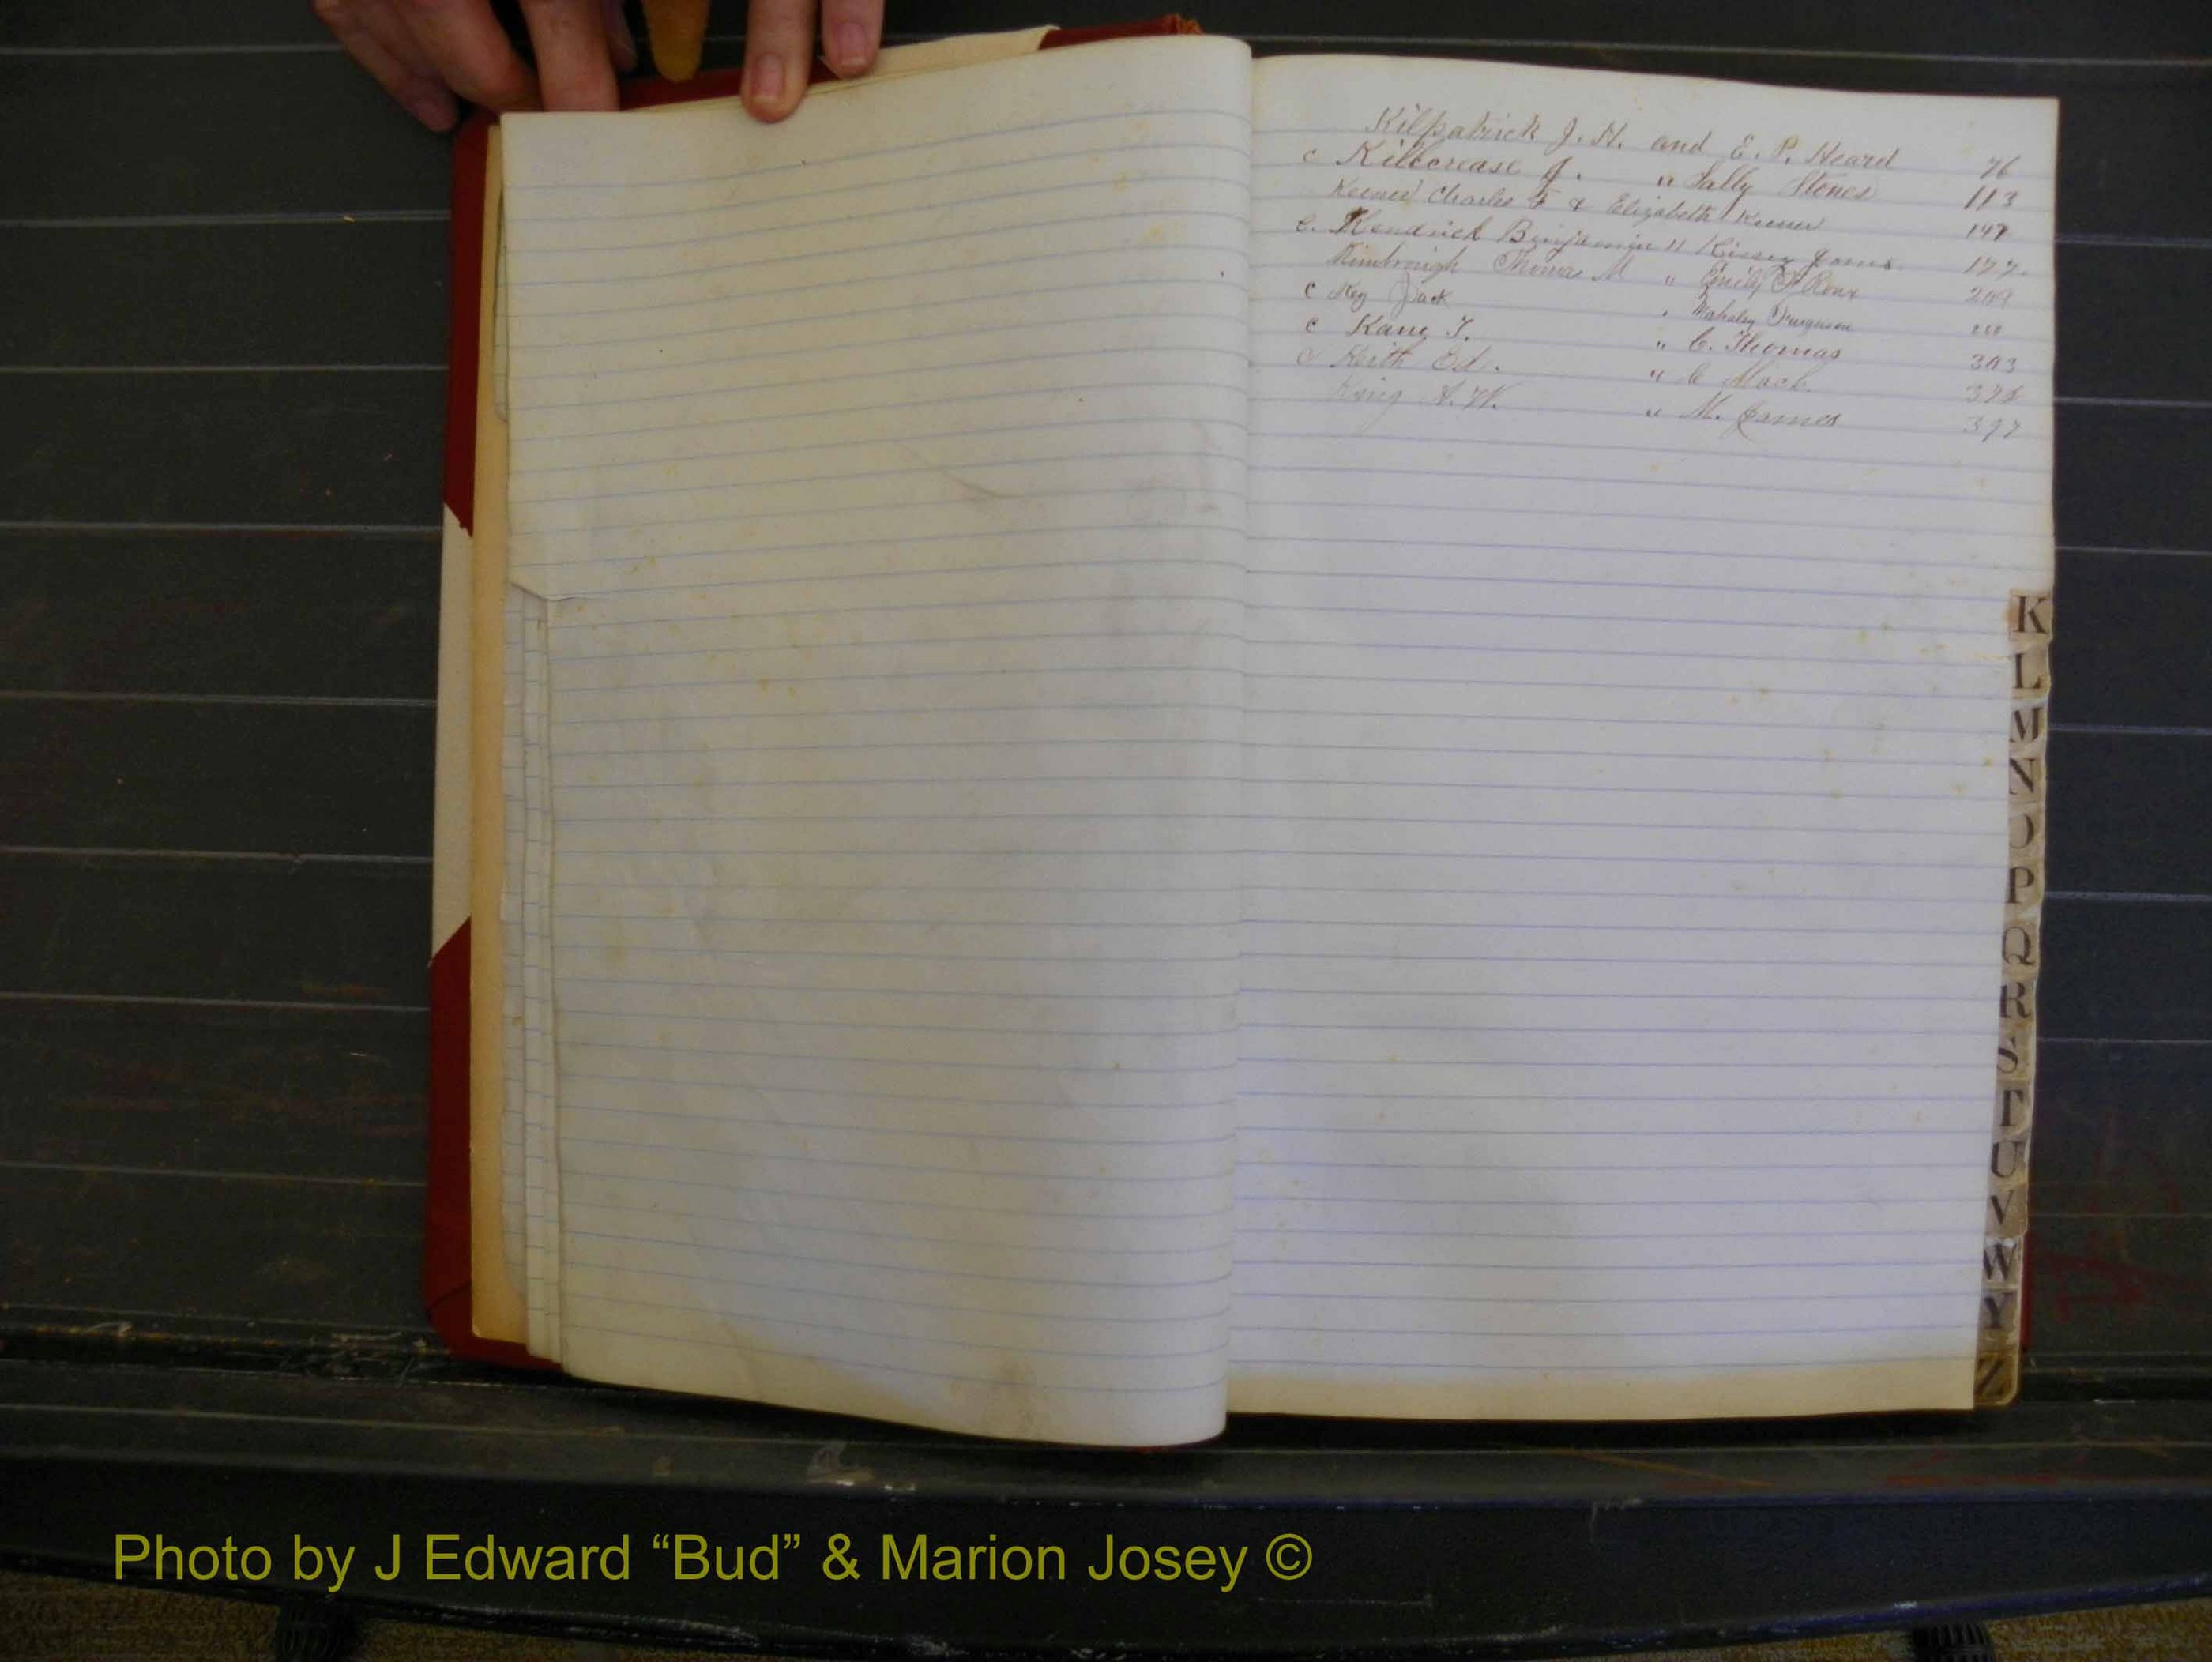 Kilpatrick J. H. and E. P. Heard 76
c Killcrease J. " Sally Stones 113
Keener Charles F & Elizabeth Keener 147
c. Kendrick Binjamin " Kissey Jones 177
Kimbrough Thomas M " Emily F
c Key Jack " Furguson
c Kane T. " C. Thomas 303
c Keith Ed. " C Mack
King A. W. " M. James 397
K
L
M
N
O
P
Q
R
S
T
U
V
W
Y
Z
Photo by J Edward “Bud” & Marion Josey ©